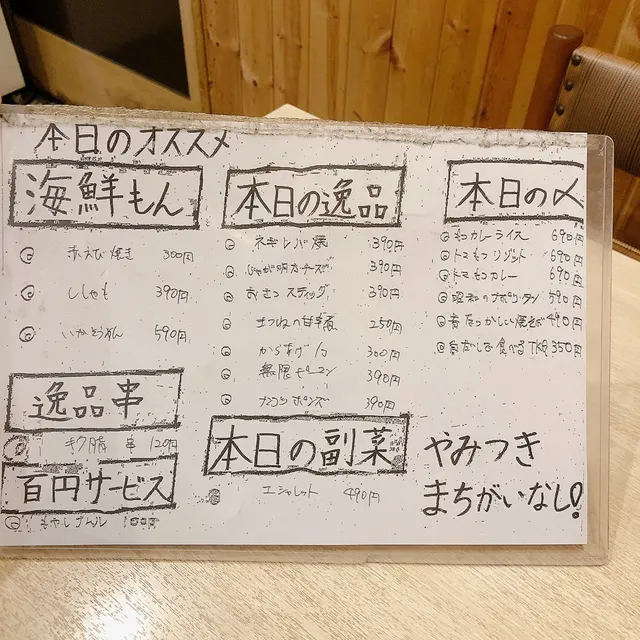 本日のオススメ
海鮮もん
赤えび焼き 300円
ししゃも 390円
いかそうめん 590円
逸品串
串 120円
百円サービス
もやしナムル 100円
本日の逸品
ネギレバ焼 390円
じゃが明太チーズ 390円
おさつスティック 390円
きつねの甘辛煮 250円
からあげ 300円
無限ピーマン 390円
ナンコツポンズ 390円
本日の副菜
エシャレット 490円
本日の〆
もつカレーライス 690円
トマもつリゾット 690円
トマもつカレー 690円
昭和のナポリタン 590円
昔なつかしい焼そば 490円
だしで食べるTKG 350円
やみつき
まちがいなし!